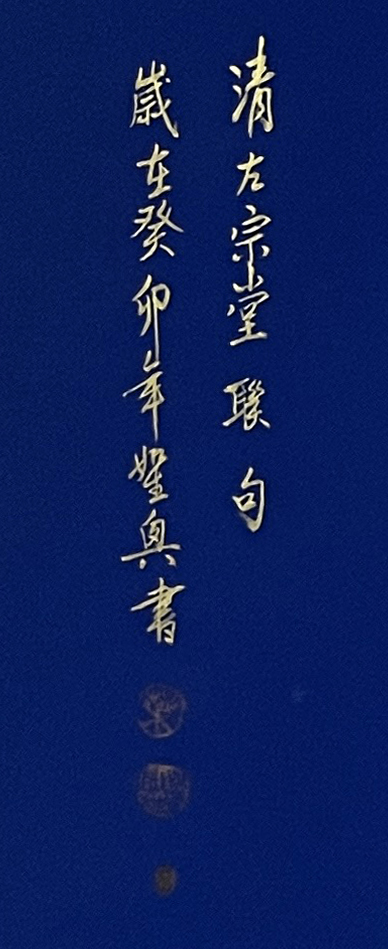 清左宗堂聯句
歲在癸卯年聖奧書